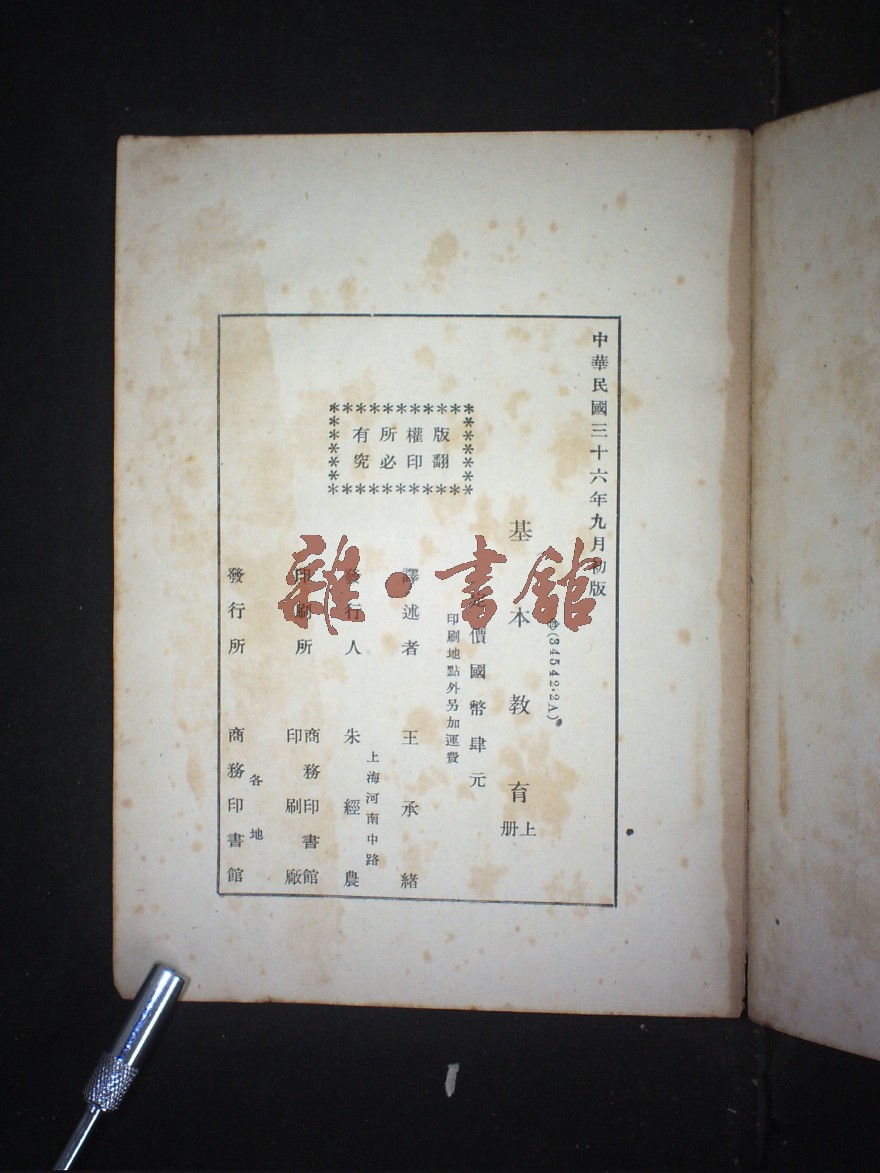 中華民國三十六年九月初版
(34542·2A)
基本教育上册
定價國幣肆元
印刷地點外另加運費
版權所有
翻印必究
譯述者 王承緒
上海河南中路
發行人 朱經農
印刷所 商務印書館
印刷廠
各地
發行所 商務印書館
雜·書館